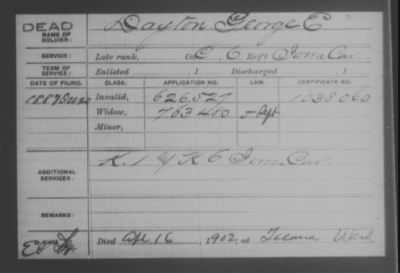 DEAD
NAME OF SOLDIER: Dayton George E
SERVICE: Late rank, Co. C, 6 Reg't Iowa Cav
TERM OF SERVICE: Enlisted , 1 Discharged , 1
DATE OF FILING. CLASS. APPLICATION NO. LAW. CERTIFICATE NO.
1887 Invalid, 626.527 1038.060
Widow, 763.480
Minor,
ADDITIONAL SERVICES: K. 1 & K 6 Iowa Cav
REMARKS:
Died Apl 16, 1902, at Tacoma Wash